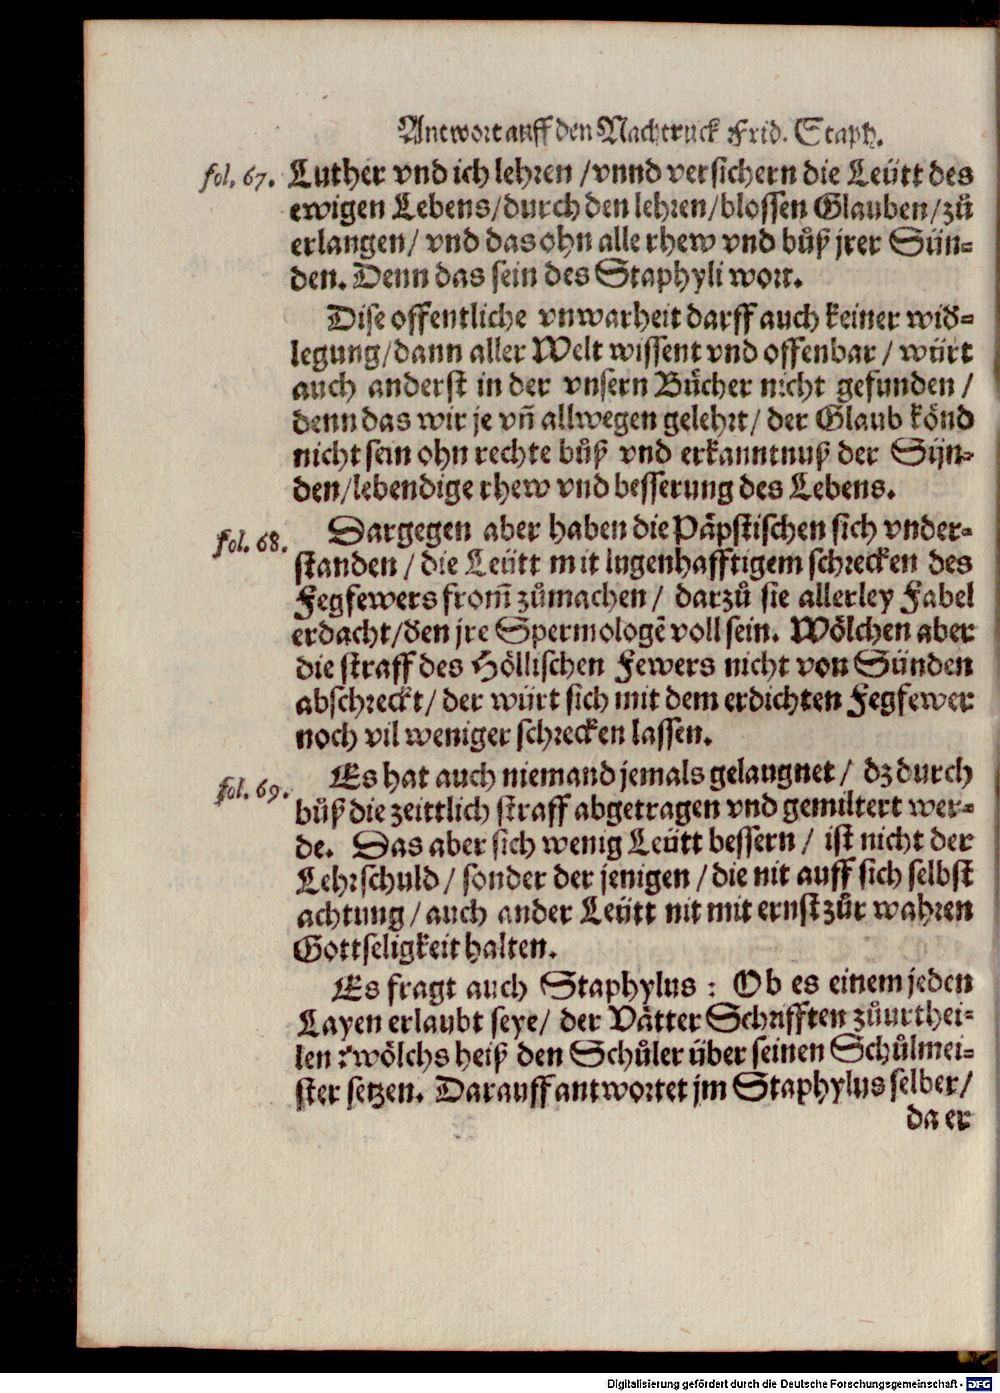 Antwort auff den Nachtruck Frid. Staph.
fol. 67. Luther vnd ich lehren /vnnd versichern die Leütt des
ewigen Lebens/durch den lehren/blossen Glauben/zů
erlangen/ vnd das ohn alle rhew vnd bůß jrer Sün-
den. Denn das sein des Staphyli wort.
Dise offentliche vnwarheit darff auch keiner wid-
legung/dann aller Welt wissent vnd offenbar / würt
auch anderst in der vnsern Bůcher nicht gefunden /
denn das wir je vñ allwegen gelehrt/ der Glaub könd
nicht sein ohn rechte bůß vnd erkanntnuß der Sün-
den/lebendige rhew vnd besserung des Lebens.
fol. 68. Dargegen aber haben die Päpstischen sich vnder-
standen / die Leütt mit lugenhafftigem schrecken des
Fegfewers from̃ zůmachen / darzů sie allerley Fabel
erdacht/den jre Spermologẽ voll sein. Wölchen aber
die straff des Höllischen Fewers nicht von Sünden
abschreckt/ der würt sich mit dem erdichten Fegfewer
noch vil weniger schrecken lassen.
fol. 69. Es hat auch niemand jemals gelaugnet / dz durch
bůß die zeittlich straff abgetragen vnd gemiltert wer-
de. Das aber sich wenig Leütt bessern / ist nicht der
Lehr schuld / sonder der jenigen / die nit auff sich selbst
achtung / auch ander Leütt nit mit ernst zůr wahren
Gottseligkeit halten.
Es fragt auch Staphylus : Ob es einem jeden
Layen erlaubt seye/ der Vätter Schrifften zůurthei-
len : wölchs heiß den Schůler über seinen Schůlmei-
ster setzen. Darauff antwortet jm Staphylus selber/
da er
Digitalisierung gefördert durch die Deutsche Forschungsgemeinschaft - DFG